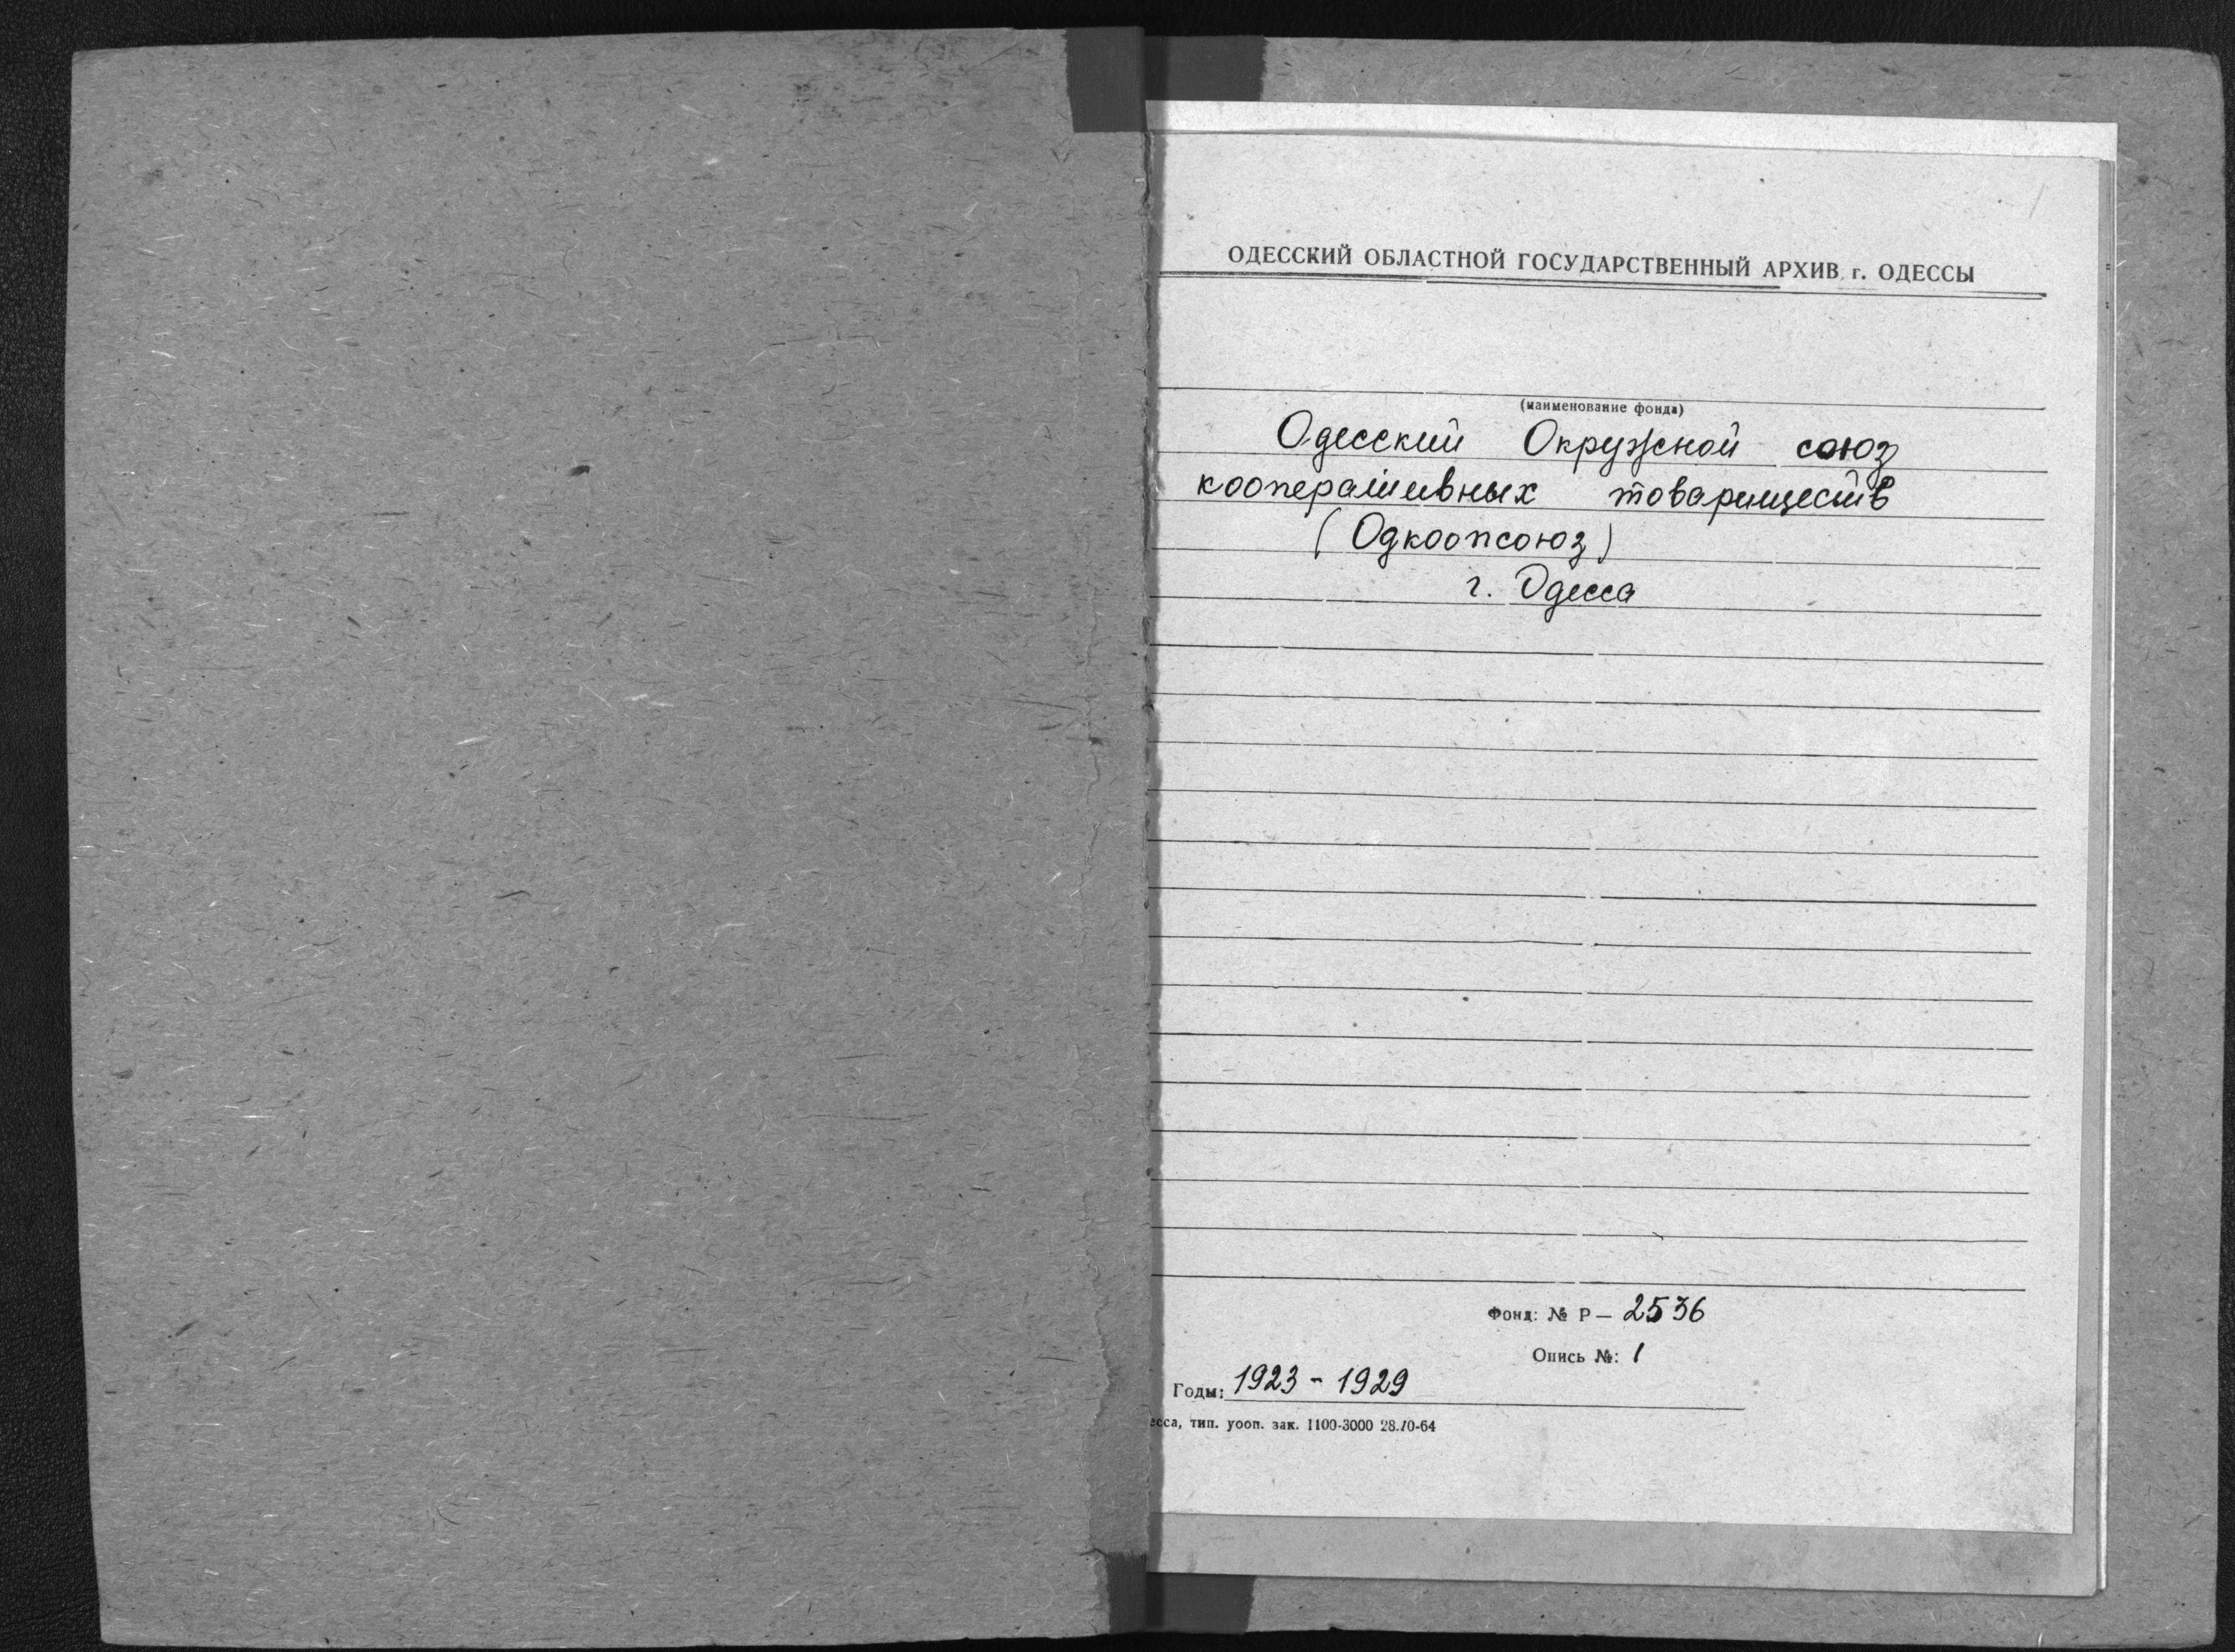 ОДЕССКИЙ ОБЛАСТНОЙ ГОСУДАРСТВЕННЫЙ АРХИВ г. ОДЕССЫ
(наименование фонда)
Одесский Окружной союз
кооперативных товариществ
(Одкоопсоюз)
г. Одесса
Фонд: № Р — 2536
Опись №: 1
Годы: 1923 - 1929
есса, тип. уооп. зак. 1100-3000 28.10-64